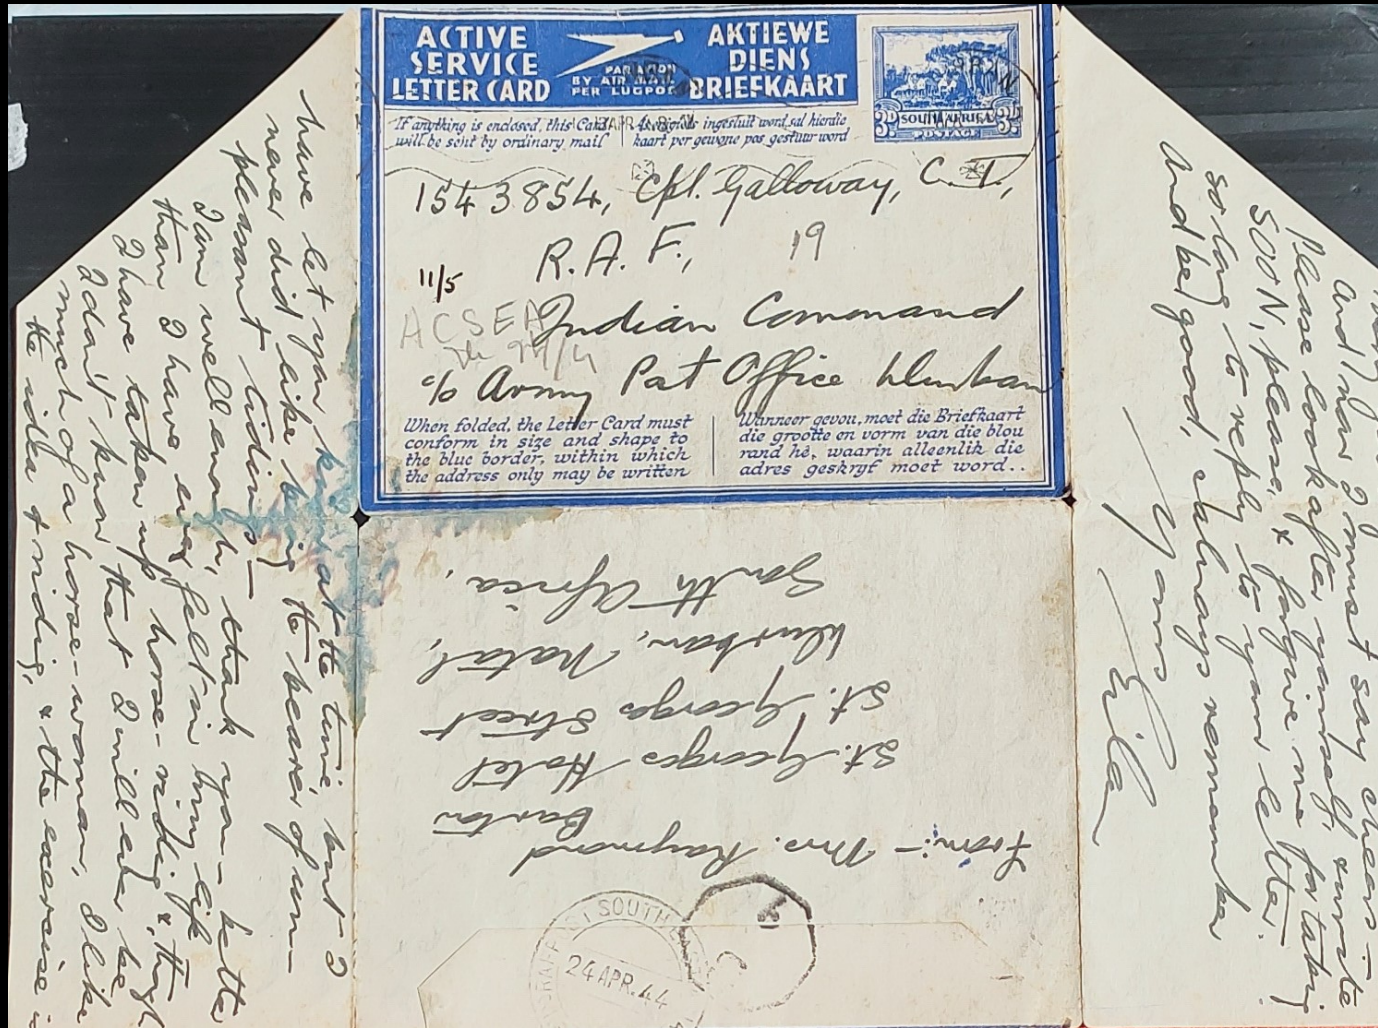 ACTIVE
SERVICE
LETTER CARD
PAR AVION
BY AIR MAIL
PER LUGPOS
AKTIEWE
DIENS
BRIEFKAART
SOUTH AFRICA
3D 3D
POSTAGE
If anything is enclosed, this Card
will be sent by ordinary mail
ingesluit word, sal hierdie
kaart per gewone pos gestuur word
1543854, Cpl. Galloway, C. T.,
R. A. F., 19
11/5
ACSEA
Indian Command
c/o Army Post Office Durban
When folded, the Letter Card must
conform in size and shape to
the blue border, within which
the address only may be written
Wanneer gevou, moet die Briefkaart
die grootte en vorm van die blou
rand hê, waarin alleenlik die
adres geskryf moet word..
From:- Mrs. Raymond
Barton
St. Georges Hotel
St. Georges Street
Durban, Natal,
South Africa,
24 APR. 44
SOUTH
have let you know at the time, but I
never did like being the bearer of un-
pleasant tidings -
I am well enough, thank you - better
than I have ever felt in my life
I have taken up horse-riding, & though
I don't know that I will ever be
much of a horse-woman, I like
the idea of riding, & the exercise
And now I must say cheers -
Please look after yourself, & write
SOON, please, & forgive me for taking
so long to reply to your letter.
And be good, always remember
Yours
Eilea